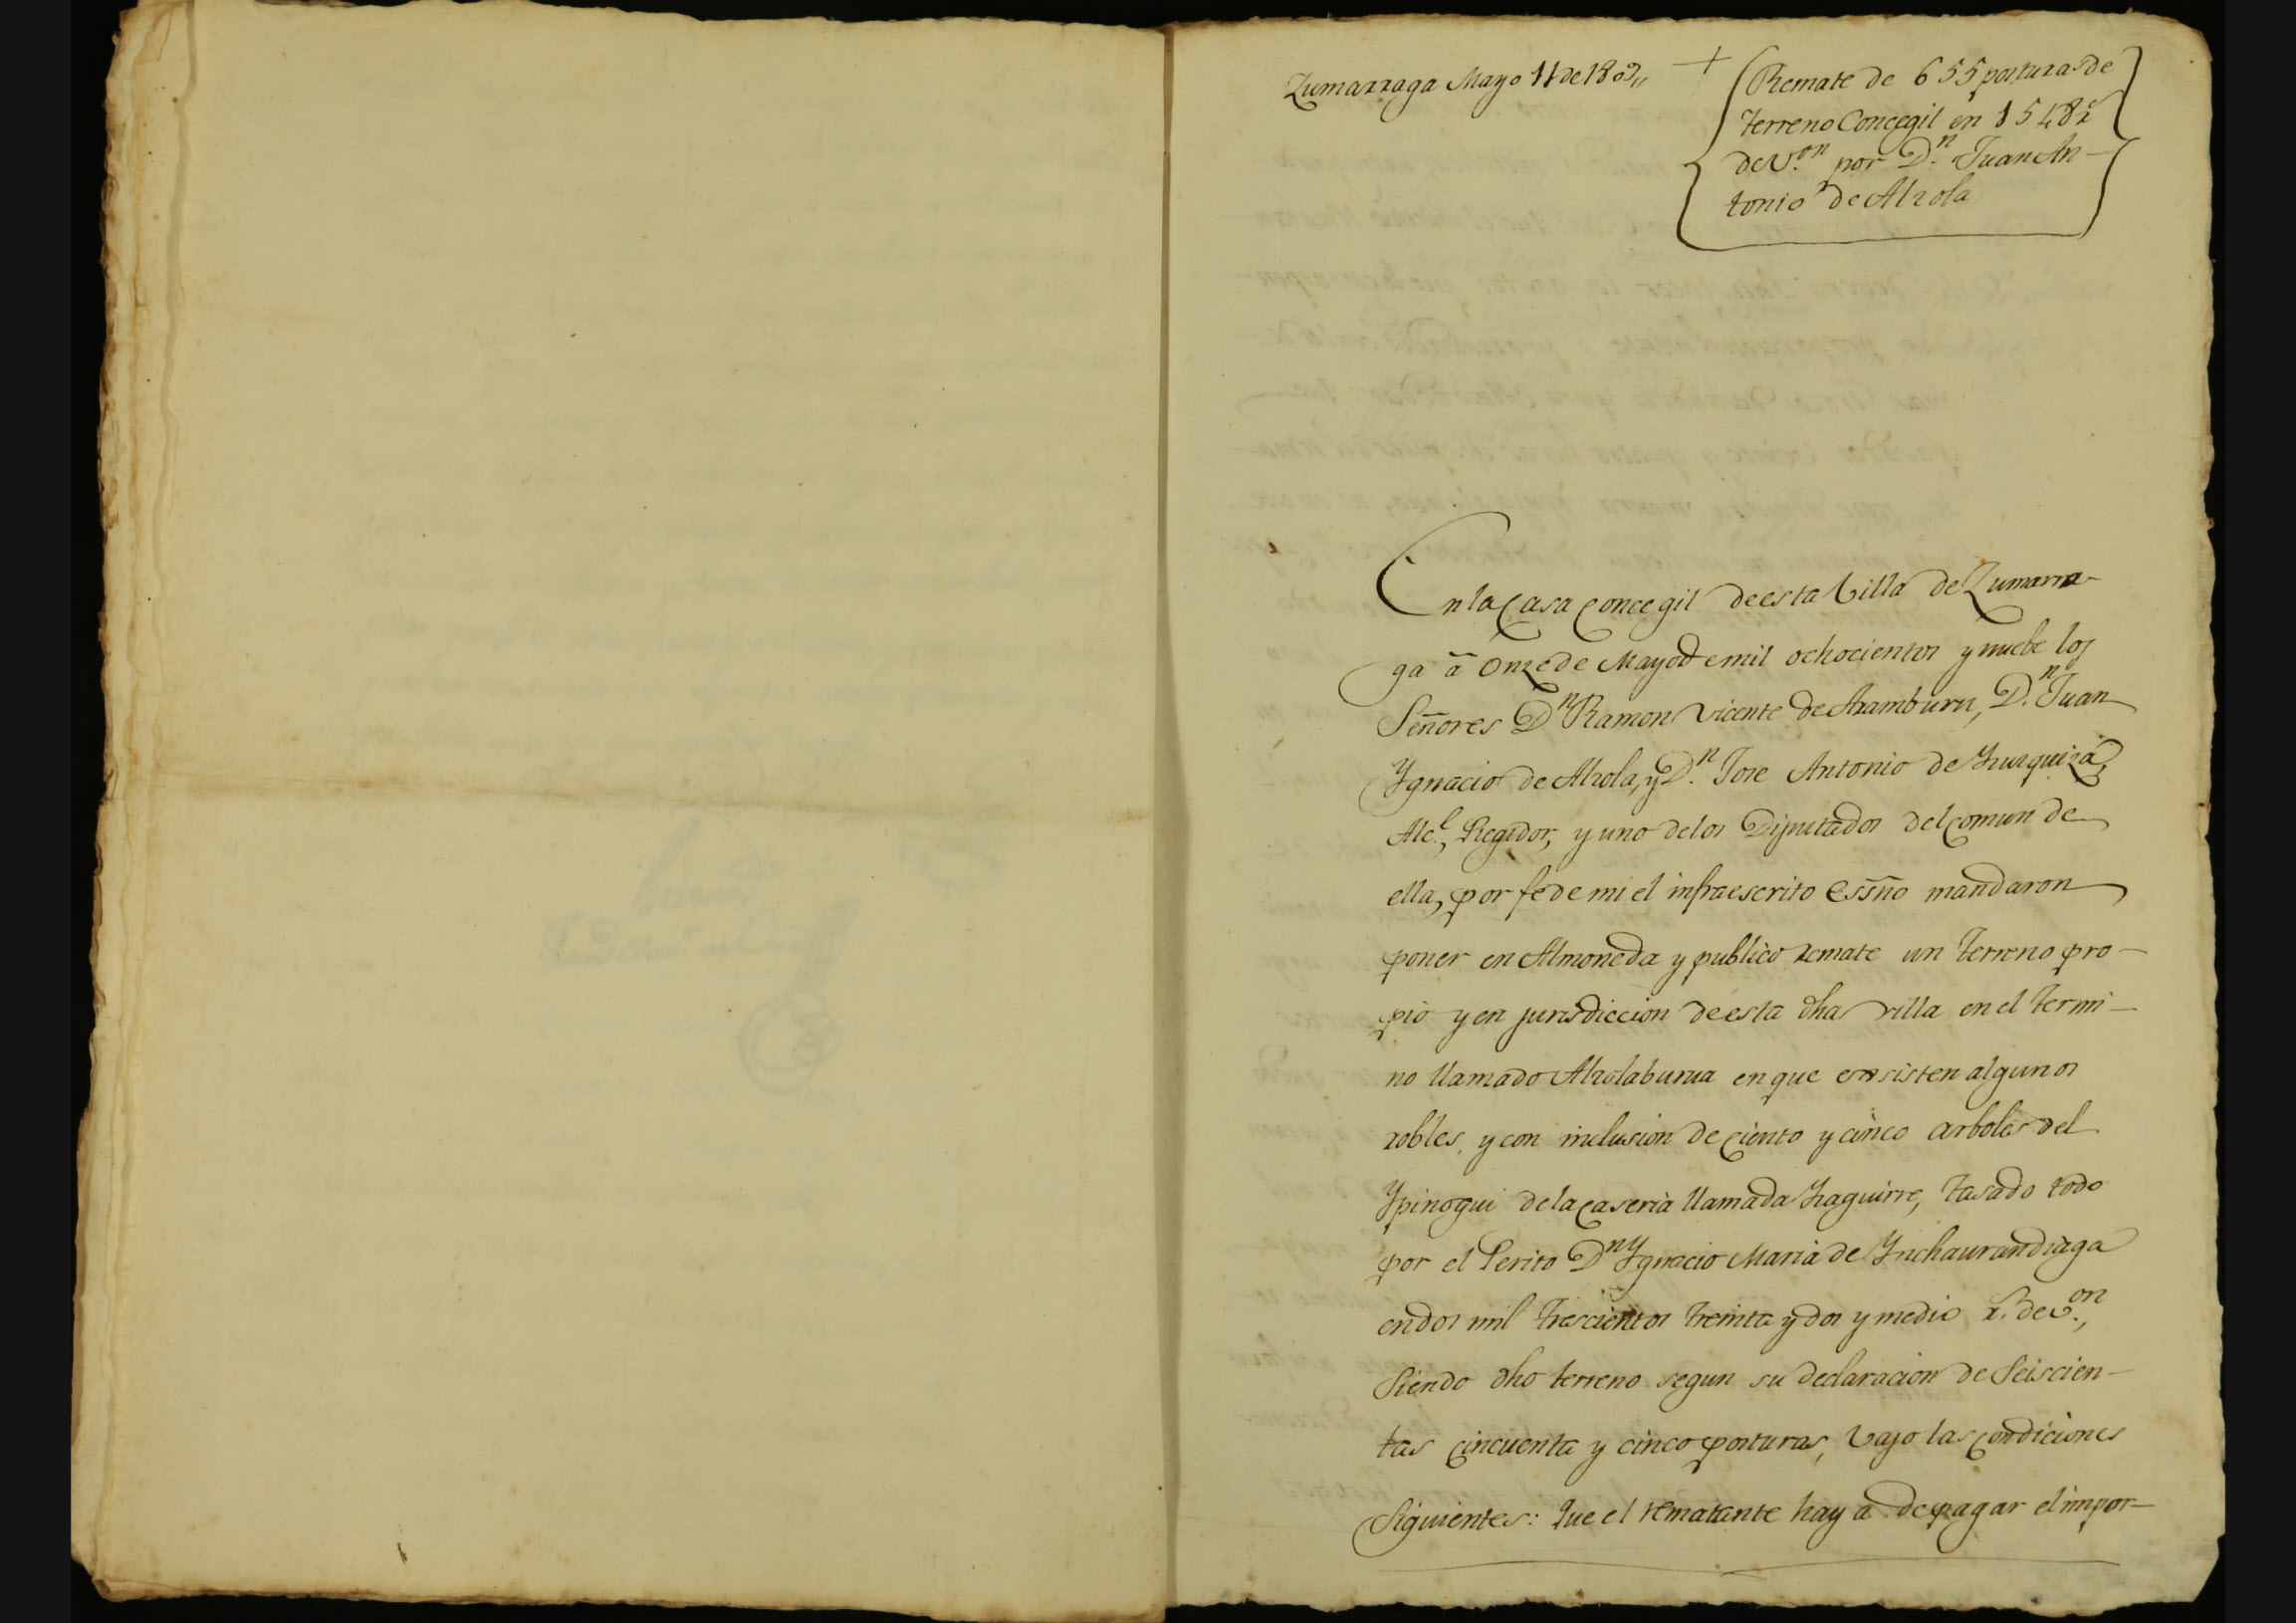 Zumarraga Mayo 11 de 1809,,
+
Remate de 655 posturas de
terreno Concegil en
de V.on por D.n Juan An-
tonio de Alzola
En la Casa Concegil de esta Villa de Zumarra-
ga â Onze de Mayo de mil ochocientos y nuebe los
Señores Dn Ramon Vicente de Aramburu, D.n Juan
Ygnacio de Alzola, y D.n Jose Antonio de Yzuzquiza,
Alc.l, Regidor, y uno de los Diputados del comun de
ella, por fe de mi el infraescrito Essño mandaron
poner en Almoneda y publico remate un terreno pro-
pio y en jurisdiccion de esta dha villa en el termi-
no llamado Alzolaburua en que ensisten algunos
robles, y con inclusion de ciento y cinco arboles del
Ypinogui de la caseria llamada Yzaguirre, tasado todo
por el Perito Dn Ygnacio Maria de Ynchaurandiaga
en dos mil trescientos treinta y dos y medio r.s de v.on,
Siendo dho terreno segun su declaracion de Seiscien-
tas cincuenta y cinco posturas, vajo las condiciones
Siguientes: Que el rematante haya de pagar el impor-